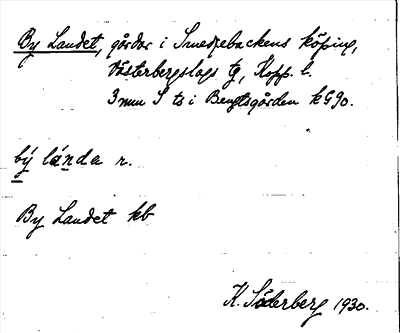 By Landet, gårdar i Smedjebackens köping,
Västerbergslags tg, Kopp. l.
3 mm S ts i Bengtsgården k G 90.
by̍ lánda n.
By Landet kb
K. Söderberg 1930.